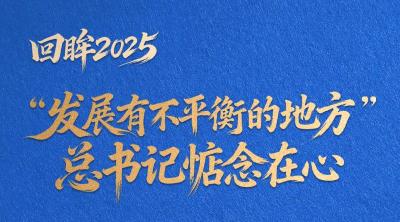 回眸2025
“发展有不平衡的地方”
总书记惦念在心